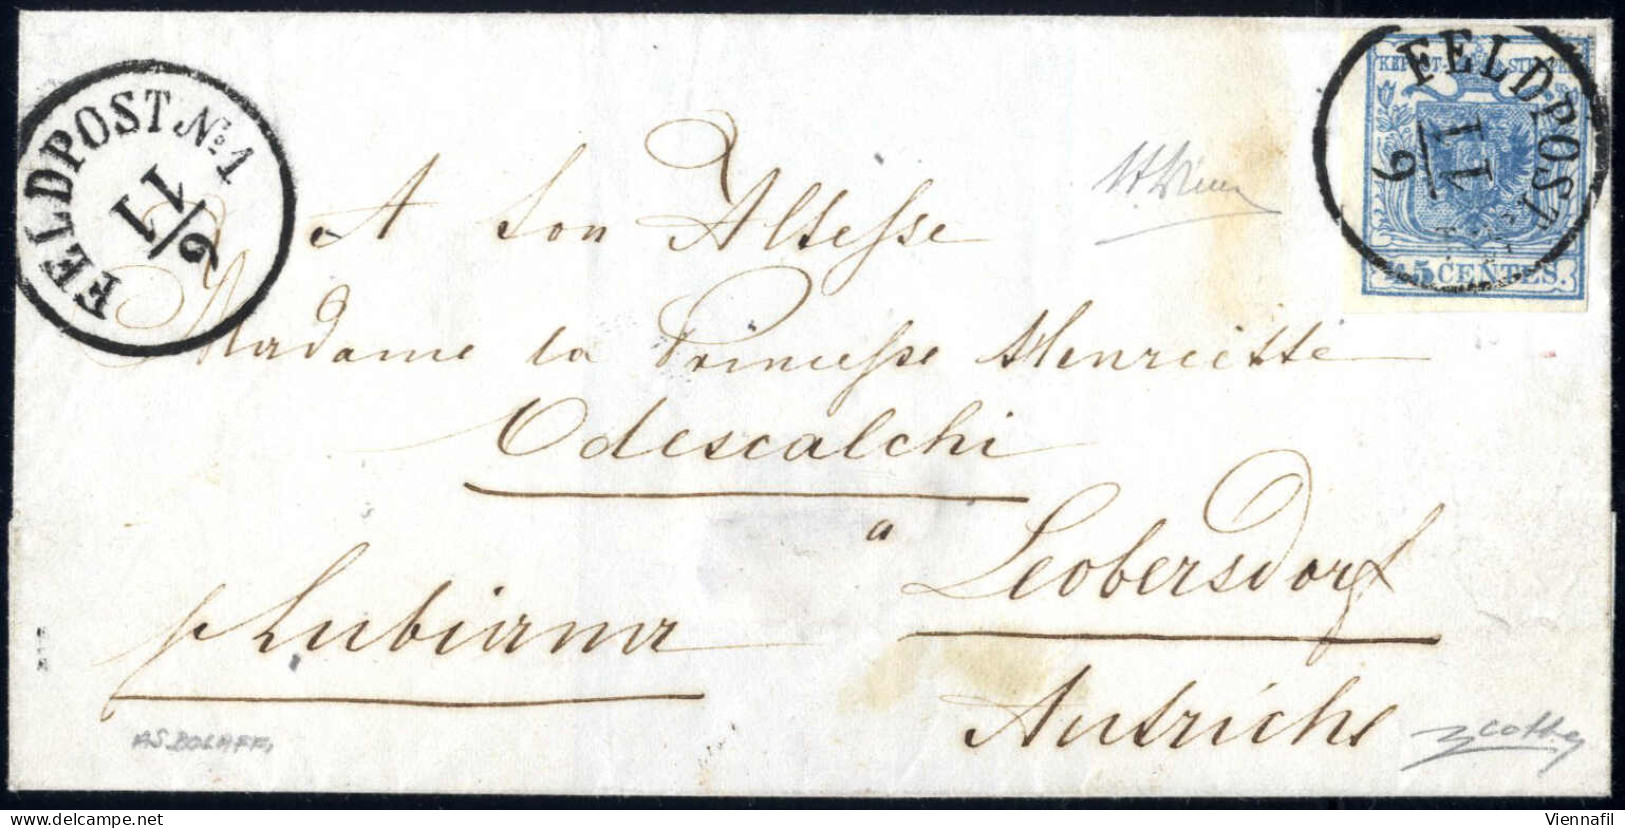 FELDPOST No 1
11/6
FELDPOST
11/6
45 CENTES.
A Son Altesse
Madame la Princesse Henriette
Odescalchi
a Leobersdorf
p Lubiana
Autriche
AS BOLAFFI
Viennafil
delcampe.net